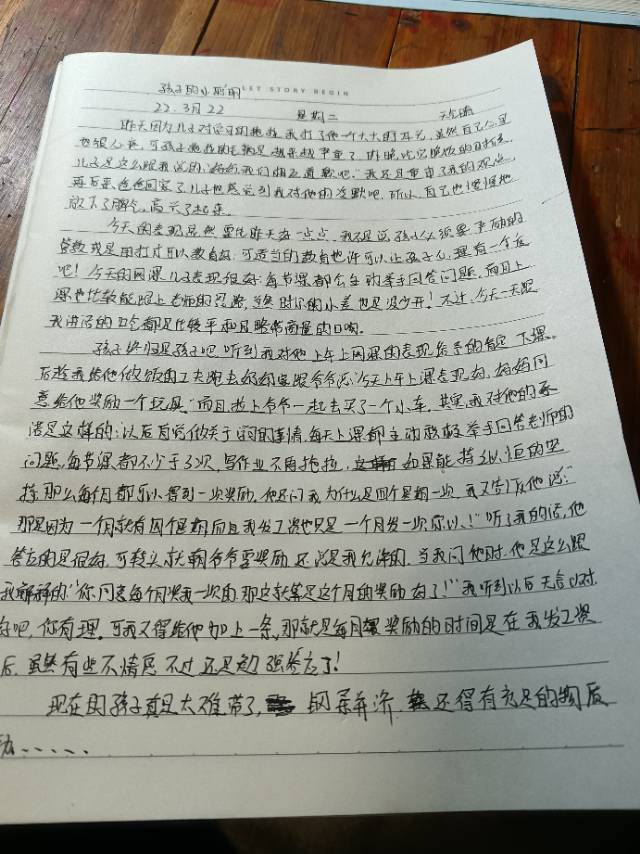 孩子的小聪明 LET STORY BEGIN
22.3月22 星期二 天气晴
昨天因为儿子对学习的拖拉,我打了他一个大大的耳光,虽然自己心里
也很心疼,可孩子拖拉的毛病是越来越严重了,昨晚吃完晚饭的时候
儿子是这么跟我说的:"妈妈我们相互道歉吧。"我还是重申了我的观点
再后来,爸爸回家了,儿子也感觉到我对他的冷歉吧,所以,自己也慢慢地
放下了脾气,高兴了起来。
今天的表现显然要比昨天好一点点,我不是说孩子必须要严厉的
管教或是用打才可以教育好,可适当的教育也许可以让孩子心里有一个底
吧!今天的网课儿子表现很好:每节课都会主动举手回答问题,而且上
课也比较能跟上老师的思路,当然时不时的小差也是没少开!不过,今天一天跟
我讲话的口气都是比较平和且略带商量的口吻。
孩子终归是孩子吧,听到我对他上午上网课的表现给予的肯定,下课
后趁我给他做饭的工夫跑去奶奶家跟爷爷说:"今天上午上课表现好,妈妈同
意给他奖励一个玩具"而且拉上爷爷一起去买了一个小车。其实,我对他的承
诺是这样的:以后自觉做关于学习的事情,每天上课都主动积极举手回答老师的
问题,每节课都不少于3次,写作业不再拖拉,如果能持之以恒的坚
持,那么每个月都可以得到一次奖励。他还问我为什么是四个星期一次,我又告诉他说:"
那是因为一个月就有四个星期而且我发工资也只是一个月发一次,所以!"听了我的话,他
答应的是很好,可转头就朝爷爷要奖励,还说是我允许的,当我问他时,他是这么跟
我解释的:"你同意每个月奖我一次的,那这就算是这个月的奖励好了!"我听到以后无言以对
好吧,你有理。可我又得给他加上一条,那就是每月奖励的时间是在我发工资
后,虽然有些不情愿,不过还是勉强答应了!
现在的孩子真是太难带了,刚柔并济,还得有充足的物质